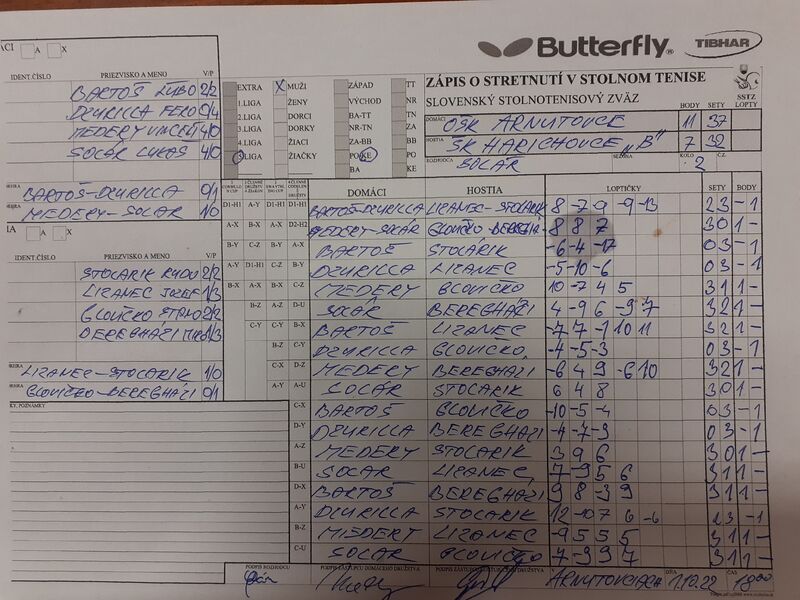 Butterfly
TIBHAR
ZÁPIS O STRETNUTÍ V STOLNOM TENISE
SLOVENSKÝ STOLNOTENISOVÝ ZVÄZ
SSTZ
BODY SETY LOPTY
DOMÁCI OŠK ARNUTOVCE 11 37
HOSTIA ŠK HARICHOVCE "B" 7 32
ROZHODCA SOLÁR SEZÓNA KOLO 2 Č.Z.
A X
IDENT.ČÍSLO PRIEZVISKO A MENO V/P
BARTOŠ ĽUBO 2/2
DZURILLA FERO 0/4
MEDERY VINCENT 4/0
SOLÁR LUKÁŠ 4/0
BARTOŠ-DZURILLA 0/1
MEDERY-SOLÁR 1/0
A X
IDENT.ČÍSLO PRIEZVISKO A MENO V/P
STOLARIK RUDO 2/2
LIZANEC JOZEF 1/3
GLOVIČKO STANO 2/2
BEREGHÁZI MIRO 1/3
LIZANEC-STOLARIK 1/0
GLOVIČKO-BEREGHÁZI 0/1
POZNÁMKY
EXTRA X MUŽI ZÁPAD TT
1.LIGA ŽENY VÝCHOD NR
2.LIGA DORCI BA-TT TN
3.LIGA DORKY NR-TN ZA
4.LIGA ŽIACI ZA-BB BB
5.LIGA ŽIAČKY PO-KE PO
BA KE
DOMÁCI HOSTIA LOPTIČKY SETY BODY
D1-H1 A-Y D1-H1 D1-H1 BARTOŠ-DZURILLA LIZANEC-STOLARIK 8 -7 9 -9 -13 2 3 - 1
A-X B-X A-X D2-H2 MEDERY-SOLÁR GLOVIČKO-BEREGHÁ- 8 8 7 3 0 1 -
B-Y C-Z B-Y A-X BARTOŠ STOLÁRIK -6 -4 -17 0 3 - 1
A-Y D1-H1 C-Z B-Y DZURILLA LIZANEC -5 -10 -6 0 3 - 1
B-X A-X B-X C-Z MEDERY GLOVIČKO 10 -7 4 5 3 1 1 -
B-Z A-Z D-U SOLÁR BEREGHÁZI 4 -9 6 -9 7 3 2 1 -
C-Y C-Y B-X BARTOŠ LIZANEC -7 7 -1 10 11 3 2 1 -
B-Z C-Y DZURILLA GLOVIČKO -4 -5 -3 0 3 - 1
C-X D-Z MEDERY BEREGHÁZI -6 4 9 -6 10 3 2 1 -
A-Y A-U SOLÁR STOLARIK 6 4 8 3 0 1 -
C-X BARTOŠ GLOVIČKO -10 -5 -4 0 3 - 1
D-Y DZURILLA BEREGHÁZI -4 -7 -9 0 3 - 1
A-Z MEDERY STOLARIK 3 9 6 3 0 1 -
B-U SOLÁR LIZANEC 7 -9 5 6 3 1 1 -
D-X BARTOŠ BEREGHÁZI 9 8 -3 9 3 1 1 -
A-Y DZURILLA STOLARIK 12 -10 7 6 -6 2 3 - 1
B-Z MEDERY LIZANEC -9 5 5 5 3 1 1 -
C-U SOLÁR GLOVIČKO 7 -9 9 7 3 1 1 -
PODPIS ROZHODCU PODPIS ZÁSTUPCU DOMÁCEHO DRUŽSTVA PODPIS ZÁSTUPCU HOSŤUJÚCEHO DRUŽSTVA V ARNUTOVCIACH DŇA 1.10.22 ČAS 18 00